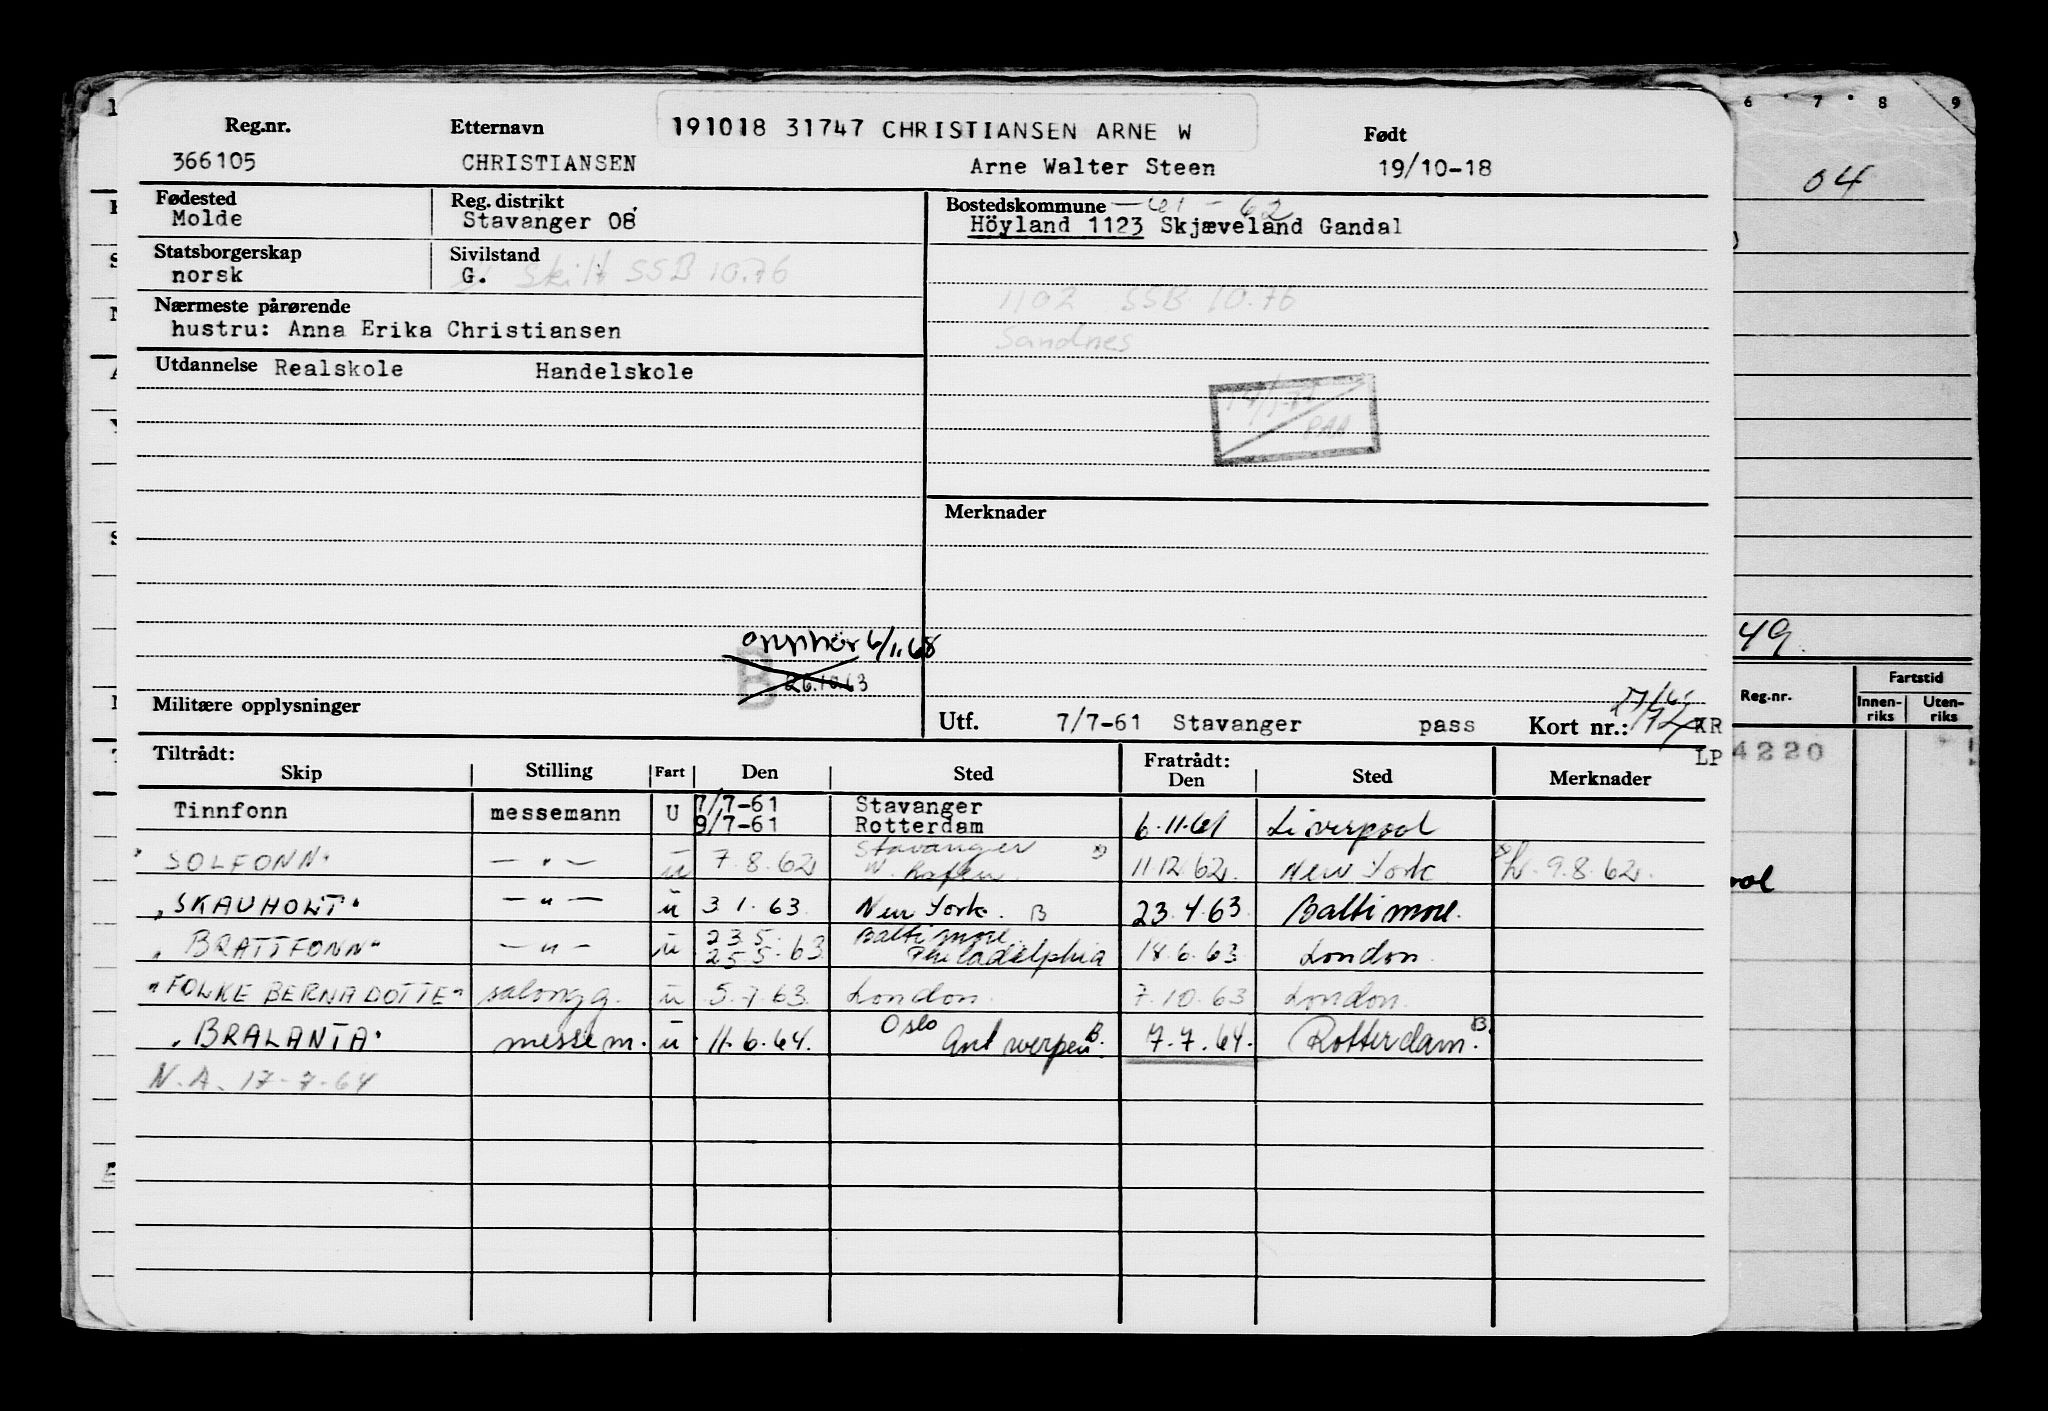 191018 31747 CHRISTIANSEN ARNE W
Reg.nr. Etternavn Født
366105 CHRISTIANSEN Arne Walter Steen 19/10-18
Fødested Reg. distrikt Bostedskommune — 61 - 62
Molde Stavanger 08 Höyland 1123 Skjæveland Gandal
Statsborgerskap Sivilstand
norsk G. Skilt SSB 10.76
1102 SSB 10.76
Nærmeste pårørende
hustru: Anna Erika Christiansen
Sandnes
Utdannelse Realskole Handelskole
PAA
Merknader
opphør 6/1.68
B 26.10.63
Militære opplysninger
Utf. 7/7-61 Stavanger pass Kort nr.: KR
LP
Tiltrådt: Fratrådt:
Skip Stilling Fart Den Sted Den Sted Merknader
Tinnfonn messemann U 7/7-61 Stavanger
9/7-61 Rotterdam 6.11.61 Liverpool
"SOLFONN" — " — u 7.8.62 Stavanger 11.12.62. New York 9.8.62.
"SKAUHOLT" — " — u 3.1.63 New York. B 23.4.63 Baltimore.
"BRATTFONN" — " — u 23.5. Baltimore
25.5.63 Philadelphia 18.6.63 London.
"FOLKE BERNADOTTE" salongg. u 5.7.63. London. 7.10.63 London.
"BRALANTA" messem. u 11.6.64. Oslo Antwerpen B. 7.7.64. Rotterdam. B
N.A. 17-7-64
6 7 8 9
04
49.
Reg.nr. Fartstid
Innen-
riks Uten-
riks
4220